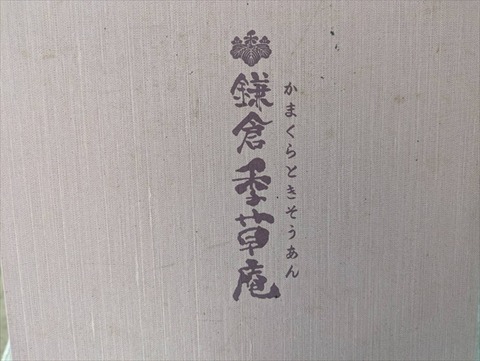 かまくらときそうあん
鎌倉季草庵